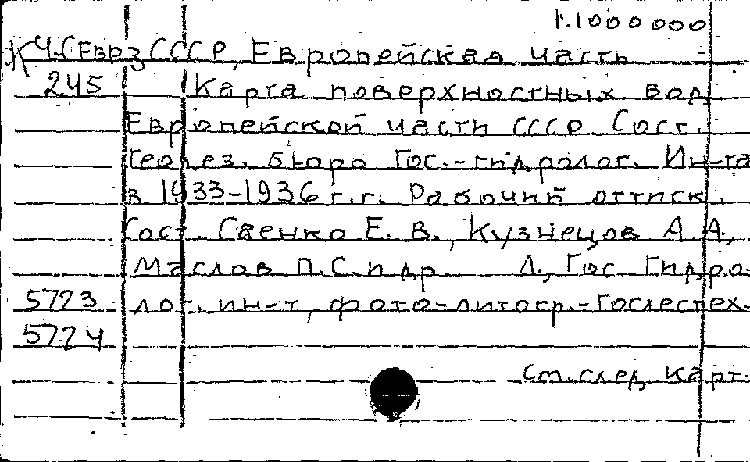 1:1000000
К Ч.(Европ) СССР, Европейская часть
245 Карта поверхностных вод
Европейской части СССР. Сост.
бюро Гос.-гидролог. Ин-та
в 1933-1936 г.г. Рабочий оттиск.
Сост. Саенко Е. В., Кузнецов А. А,
Маслов П.С. и др. Л., Гос Гидро
5723 лог. ин-т, фото-литогр.-Гослестех.
5724
См. след. карт.